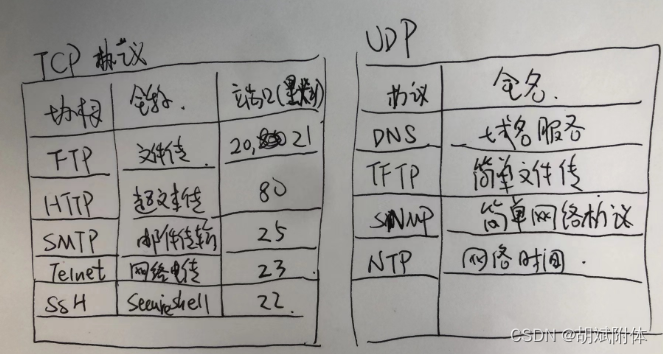 TCP 协议
协议 全称 端口(默认)
FTP 文件传 20, 21
HTTP 超文本传 80
SMTP 邮件传输 25
Telnet 网络电传 23
SSH Secureshell 22
UDP
协议 全名
DNS 域名服务
TFTP 简单文件传
SNMP 简单网络协议
NTP 网络时间
CSDN @胡斌附体